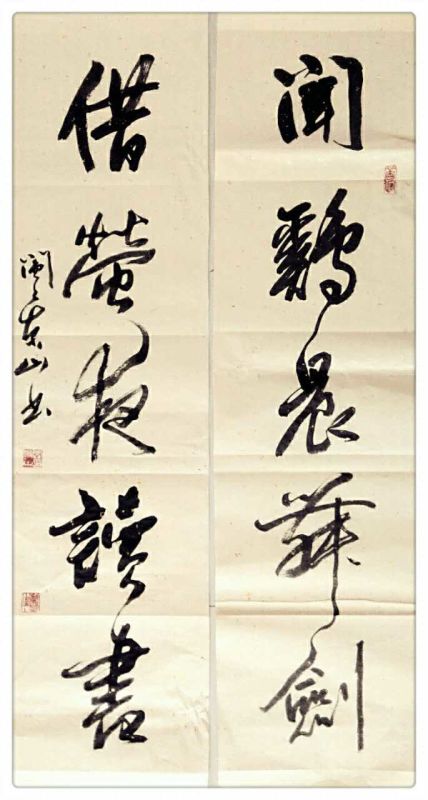 聞鷄晨舞劍
借螢夜讀書
閩東山書